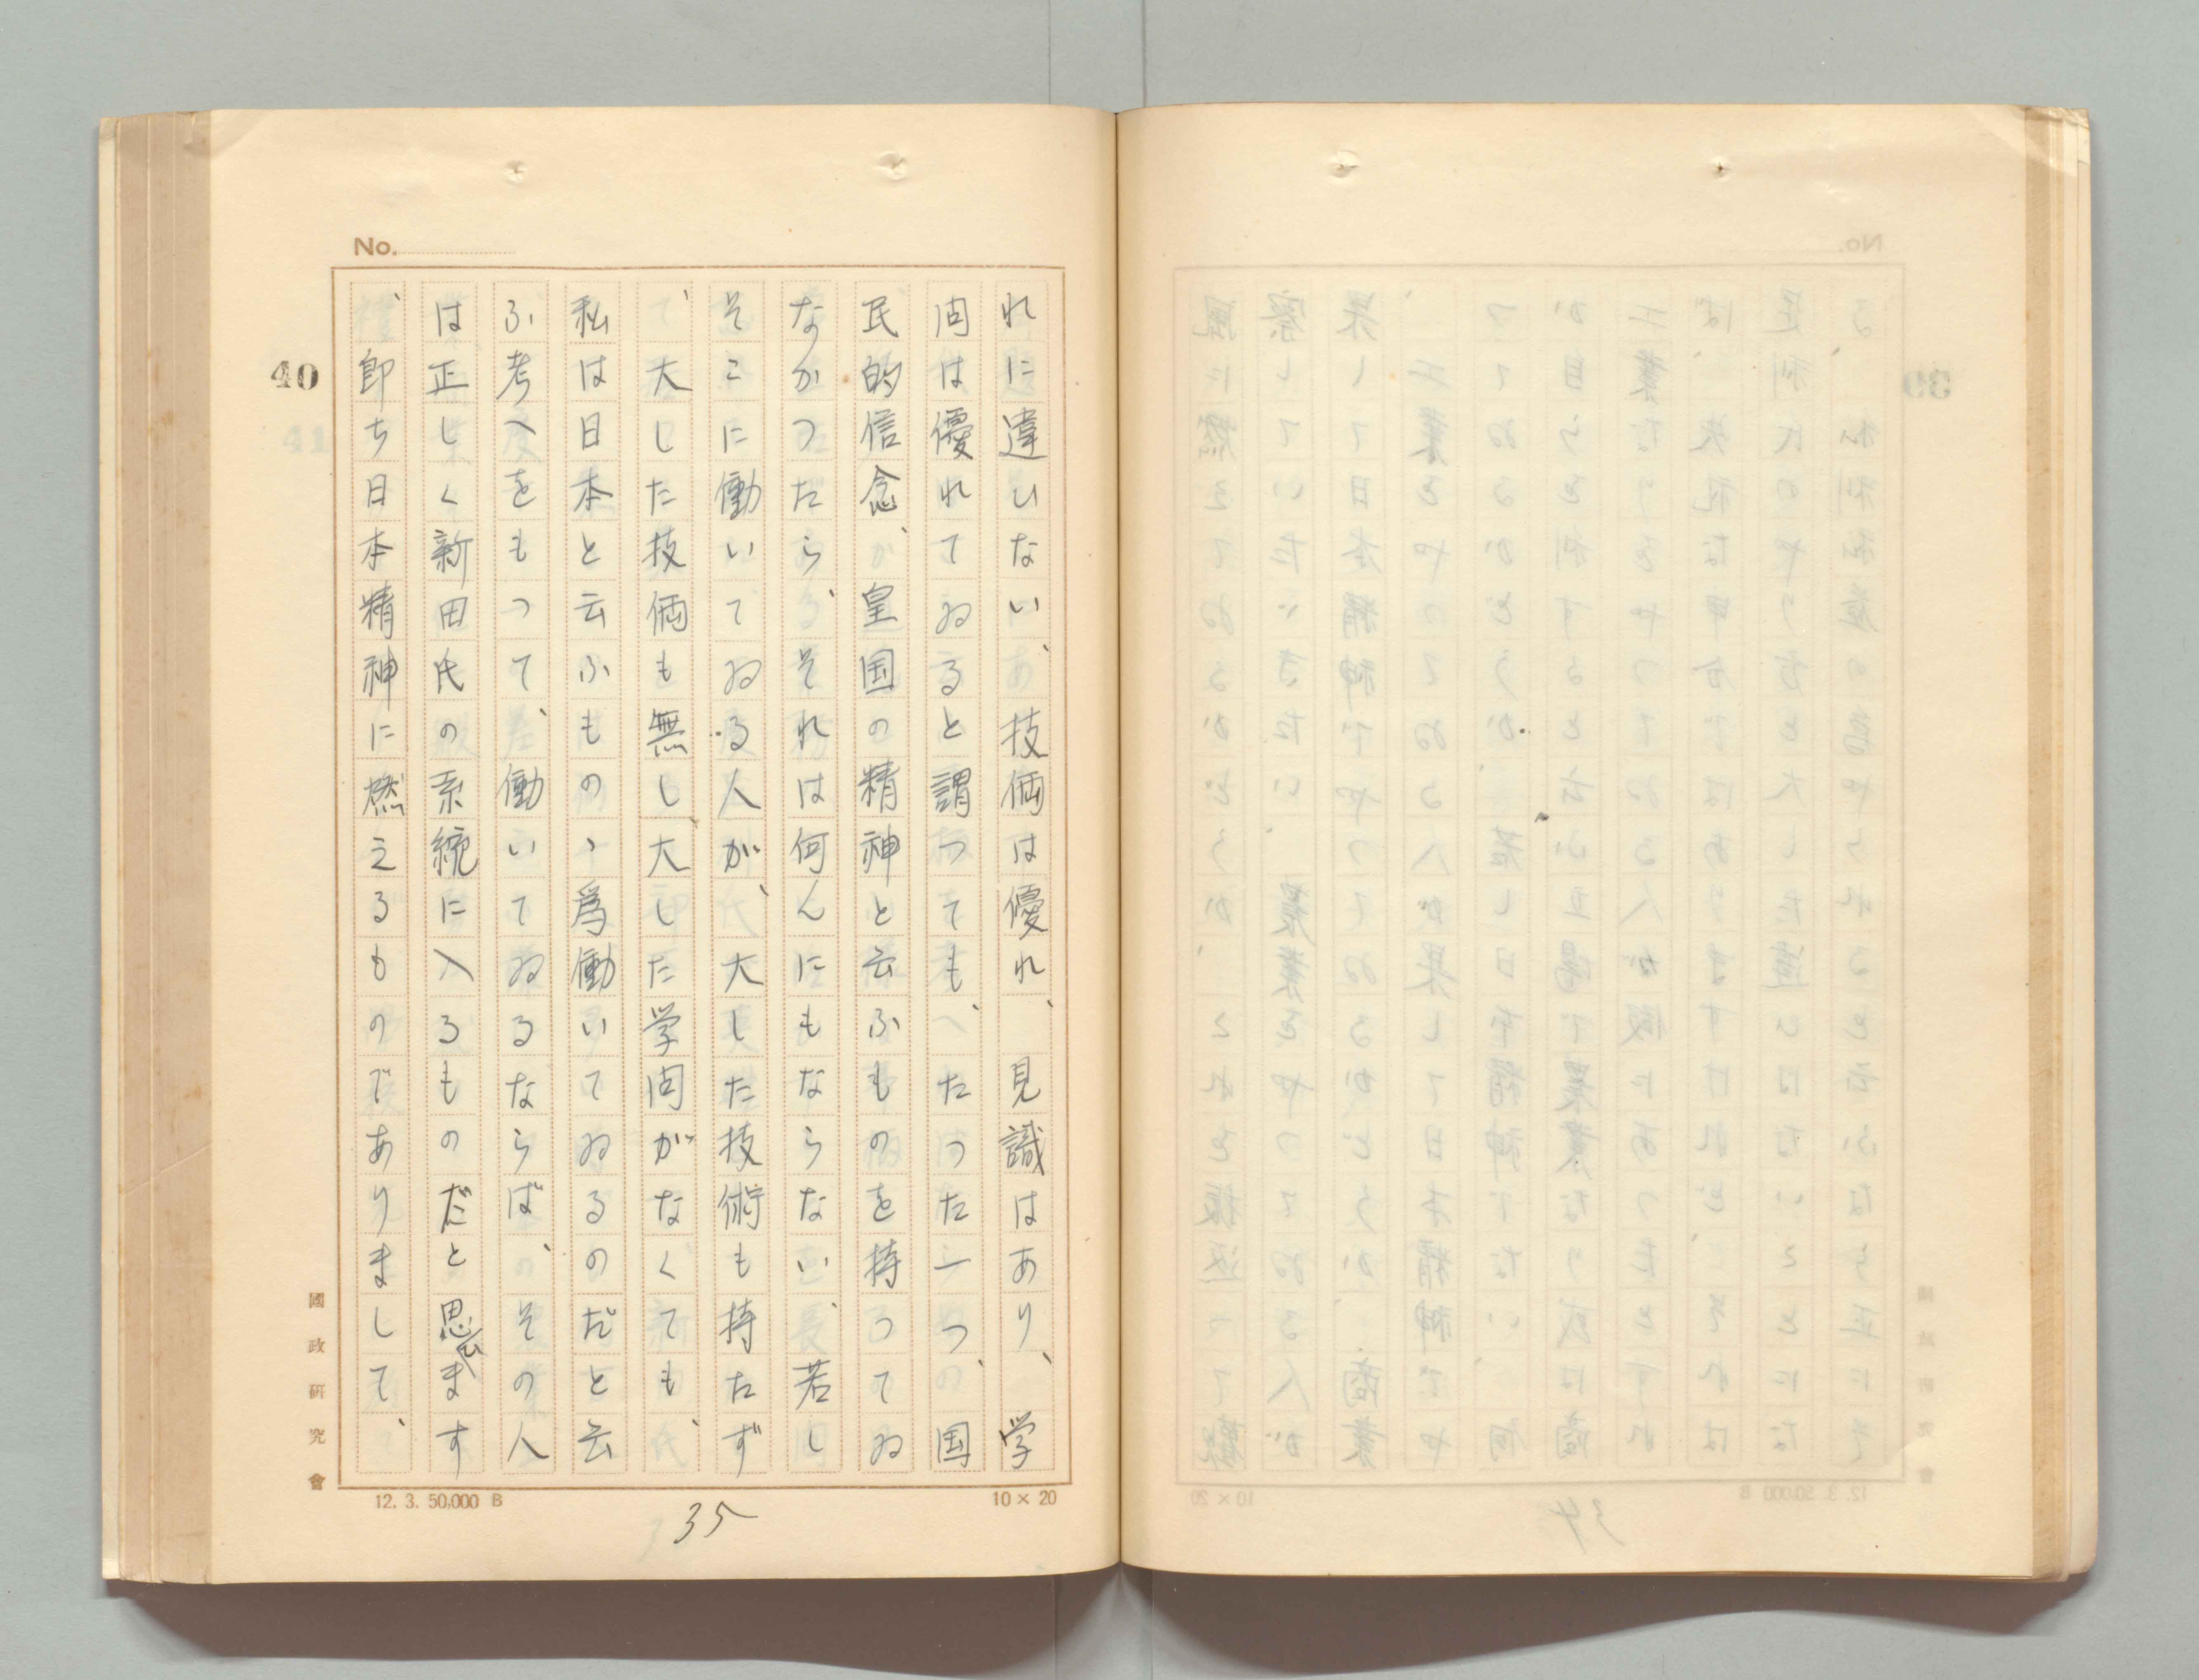 No.
れに違ひない、技倆は優れ、見識はあり、学
問は優れてゐると謂つても、たつた一つ、国
民的信念、皇国の精神と云ふものを持つてゐ
なかつたら、それは何んにもならない、若し
そこに働いてゐる人が、大した技術も持たず
、大した技倆も無し大した学問がなくても、
私は日本と云ふものゝ為働いてゐるのだと云
ふ考へをもつて、働いてゐるならば、その人
は正しく新田氏の系統に入るものだと思ひます
、即ち日本精神に燃えるものでありまして、
40
國政研究會
12. 3. 50,000 B
10×20
35